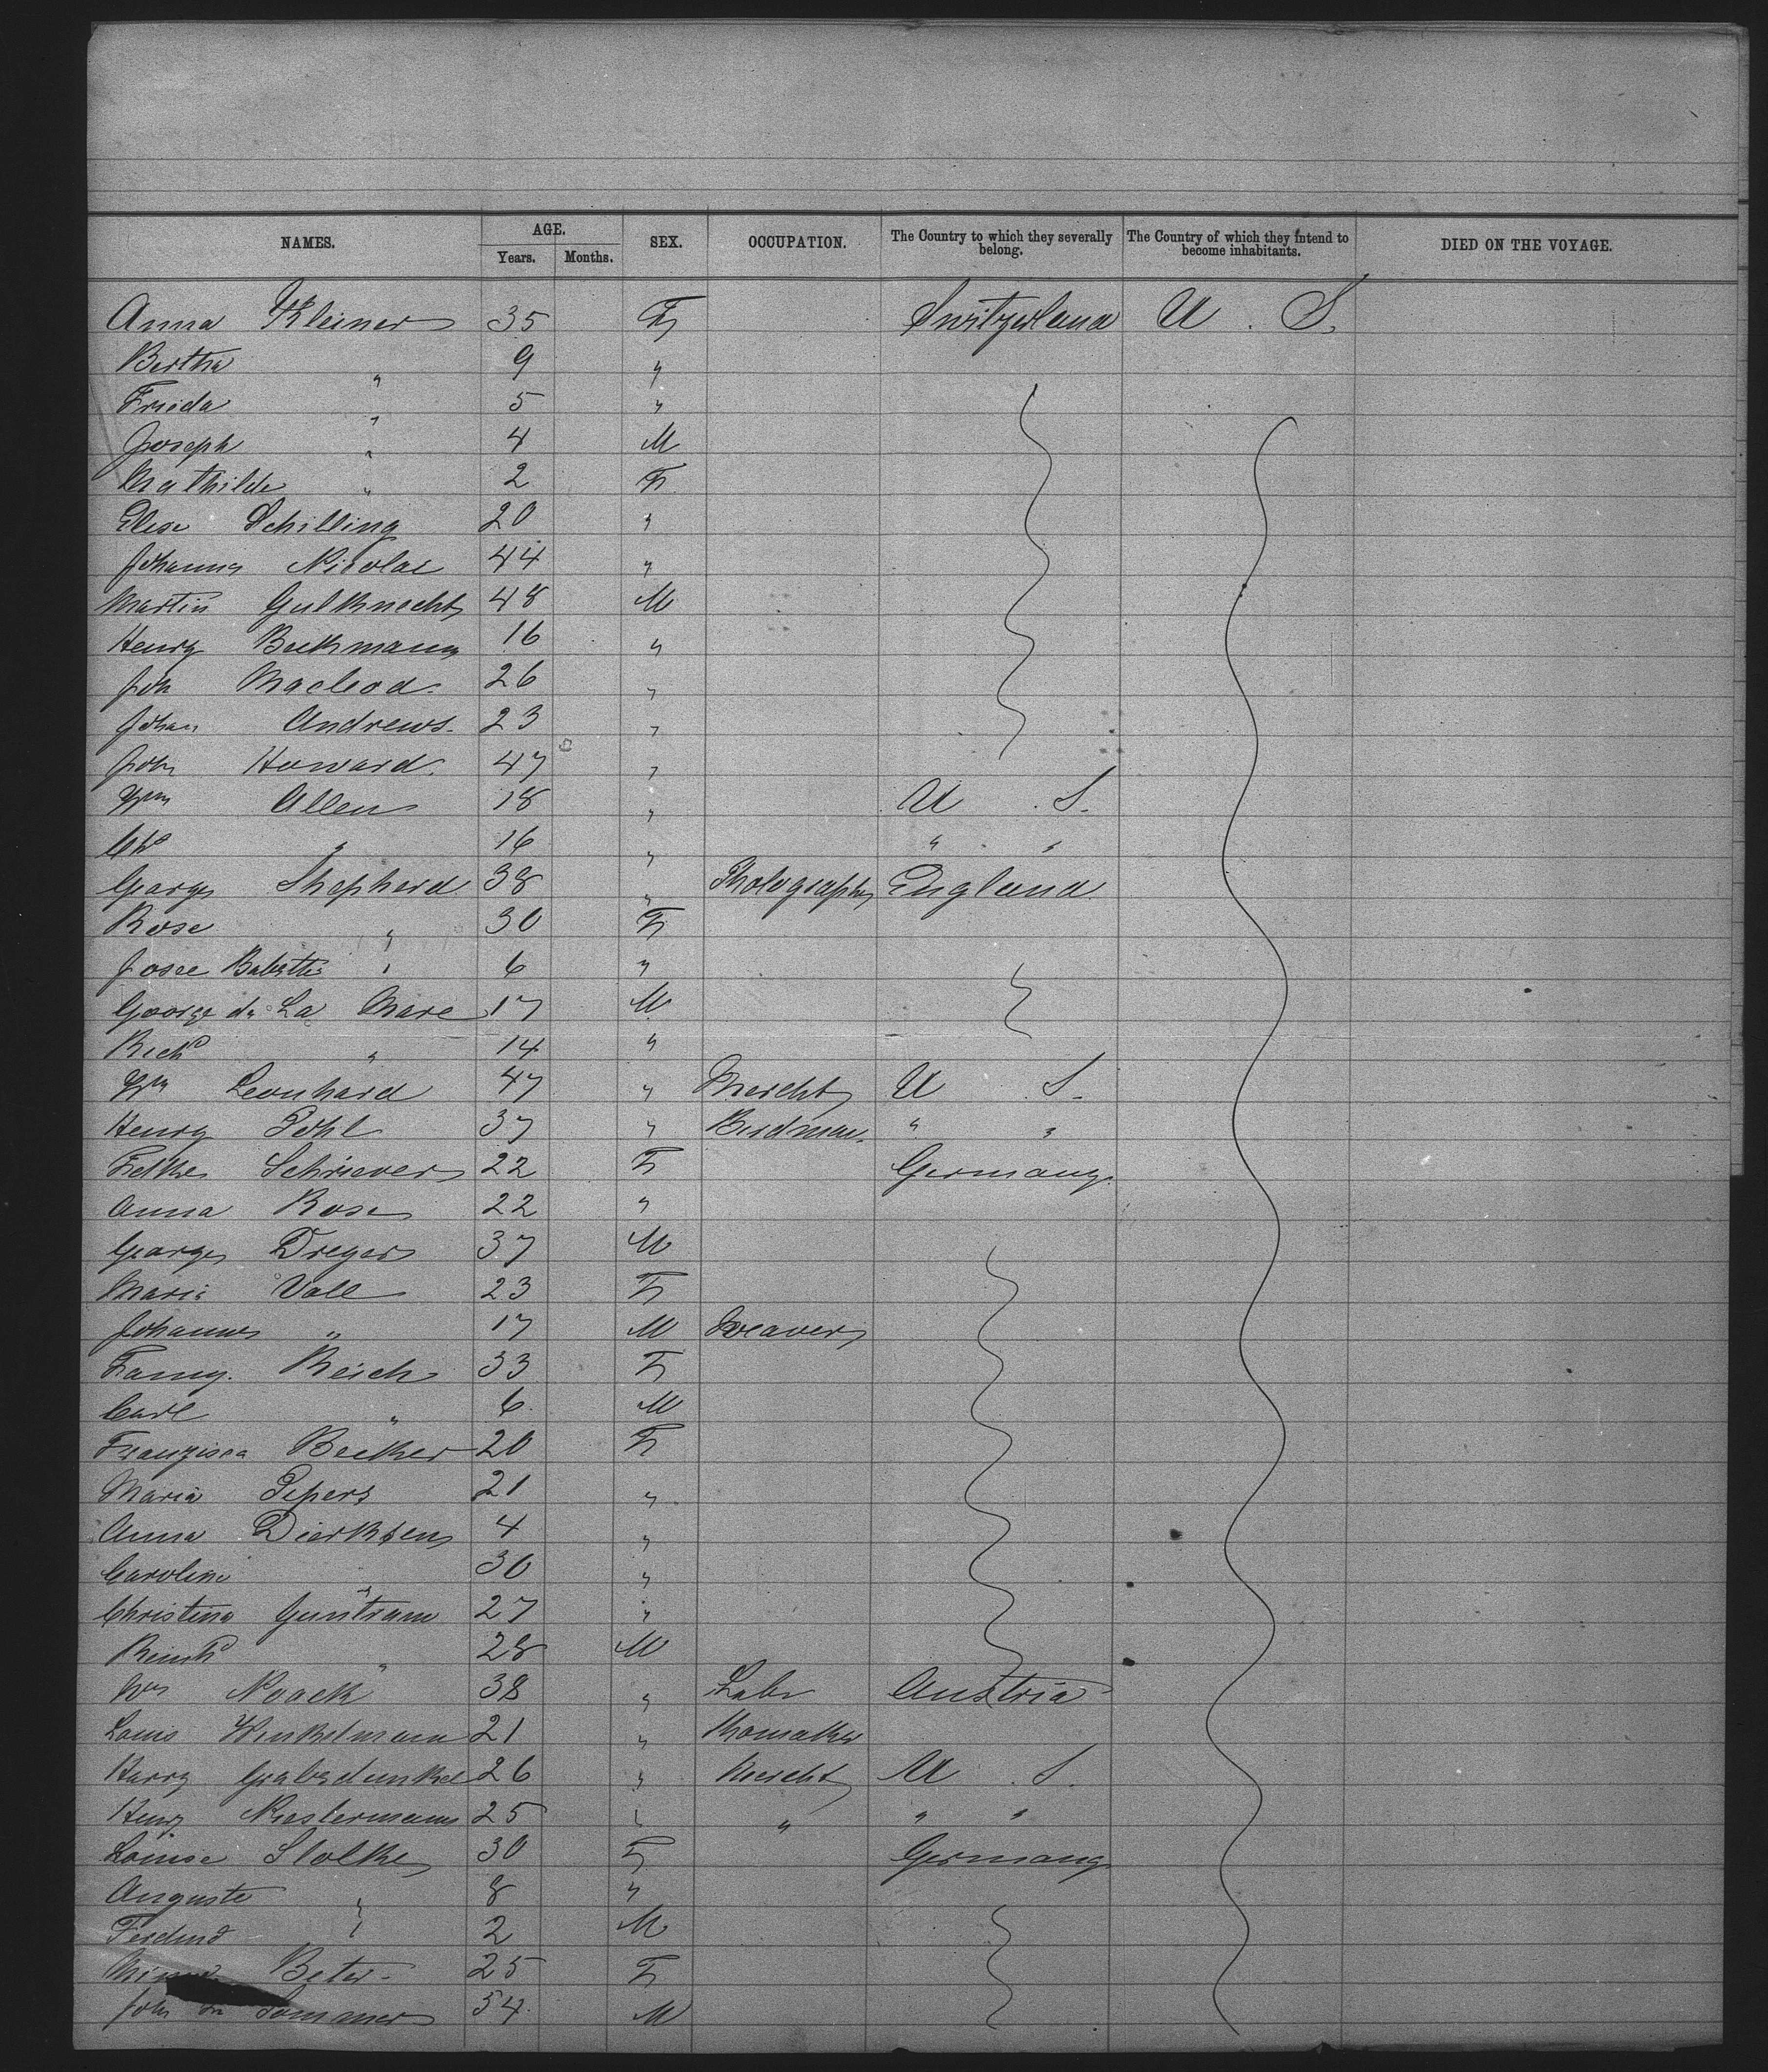 NAMES. AGE. SEX. OCCUPATION. The Country to which they severally belong. The Country of which they intend to become inhabitants. DIED ON THE VOYAGE.
Years. Months.
Anna Kleiner 35 F Switzerland U. S.
Bertha " 9 "
Frieda " 5 "
Joseph " 4 M
Mathilde " 2 F
Elise Schilling 20 "
Johanna Nicolai 44 "
Martin 48 M
Henry 16 "
Joh Macleod. 26 "
Johan Andrews. 23 "
John Howard. 47 "
Wm Allen 18 " U S.
Chs " 16 " " "
George Shepherd 38 " Photographer England
Rose " 30 F
Babette " 6 "
George de La Mare 17 M
Richd " 14 "
Wm Leonhard 47 " Mercht U S.
Henry Pohl 37 " Birdman. " "
Schriever 22 F Germany.
Anna Rose 22 "
George Dreyer 37 M
Maria Voll 23 F
Johannes " 17 M Weaver
Fanny. Reich 33 F
Carl " 6 M
Franzisca Becker 20 F
Maria Pepers 21 "
Anna Dierksen 4 "
Caroline " 30 "
Christina Guntram 27 "
" 28 M
Wm Noack 38 " Labr Austria
Louis Winkelmann 21 "
Harry Grabedunkel 26 " Mercht U. S.
Henry 25 " " " "
Louise Stolke 30 F Germany
Auguste " 8 "
Ferdind " 2 M
Beter. 25 F
John 54. M